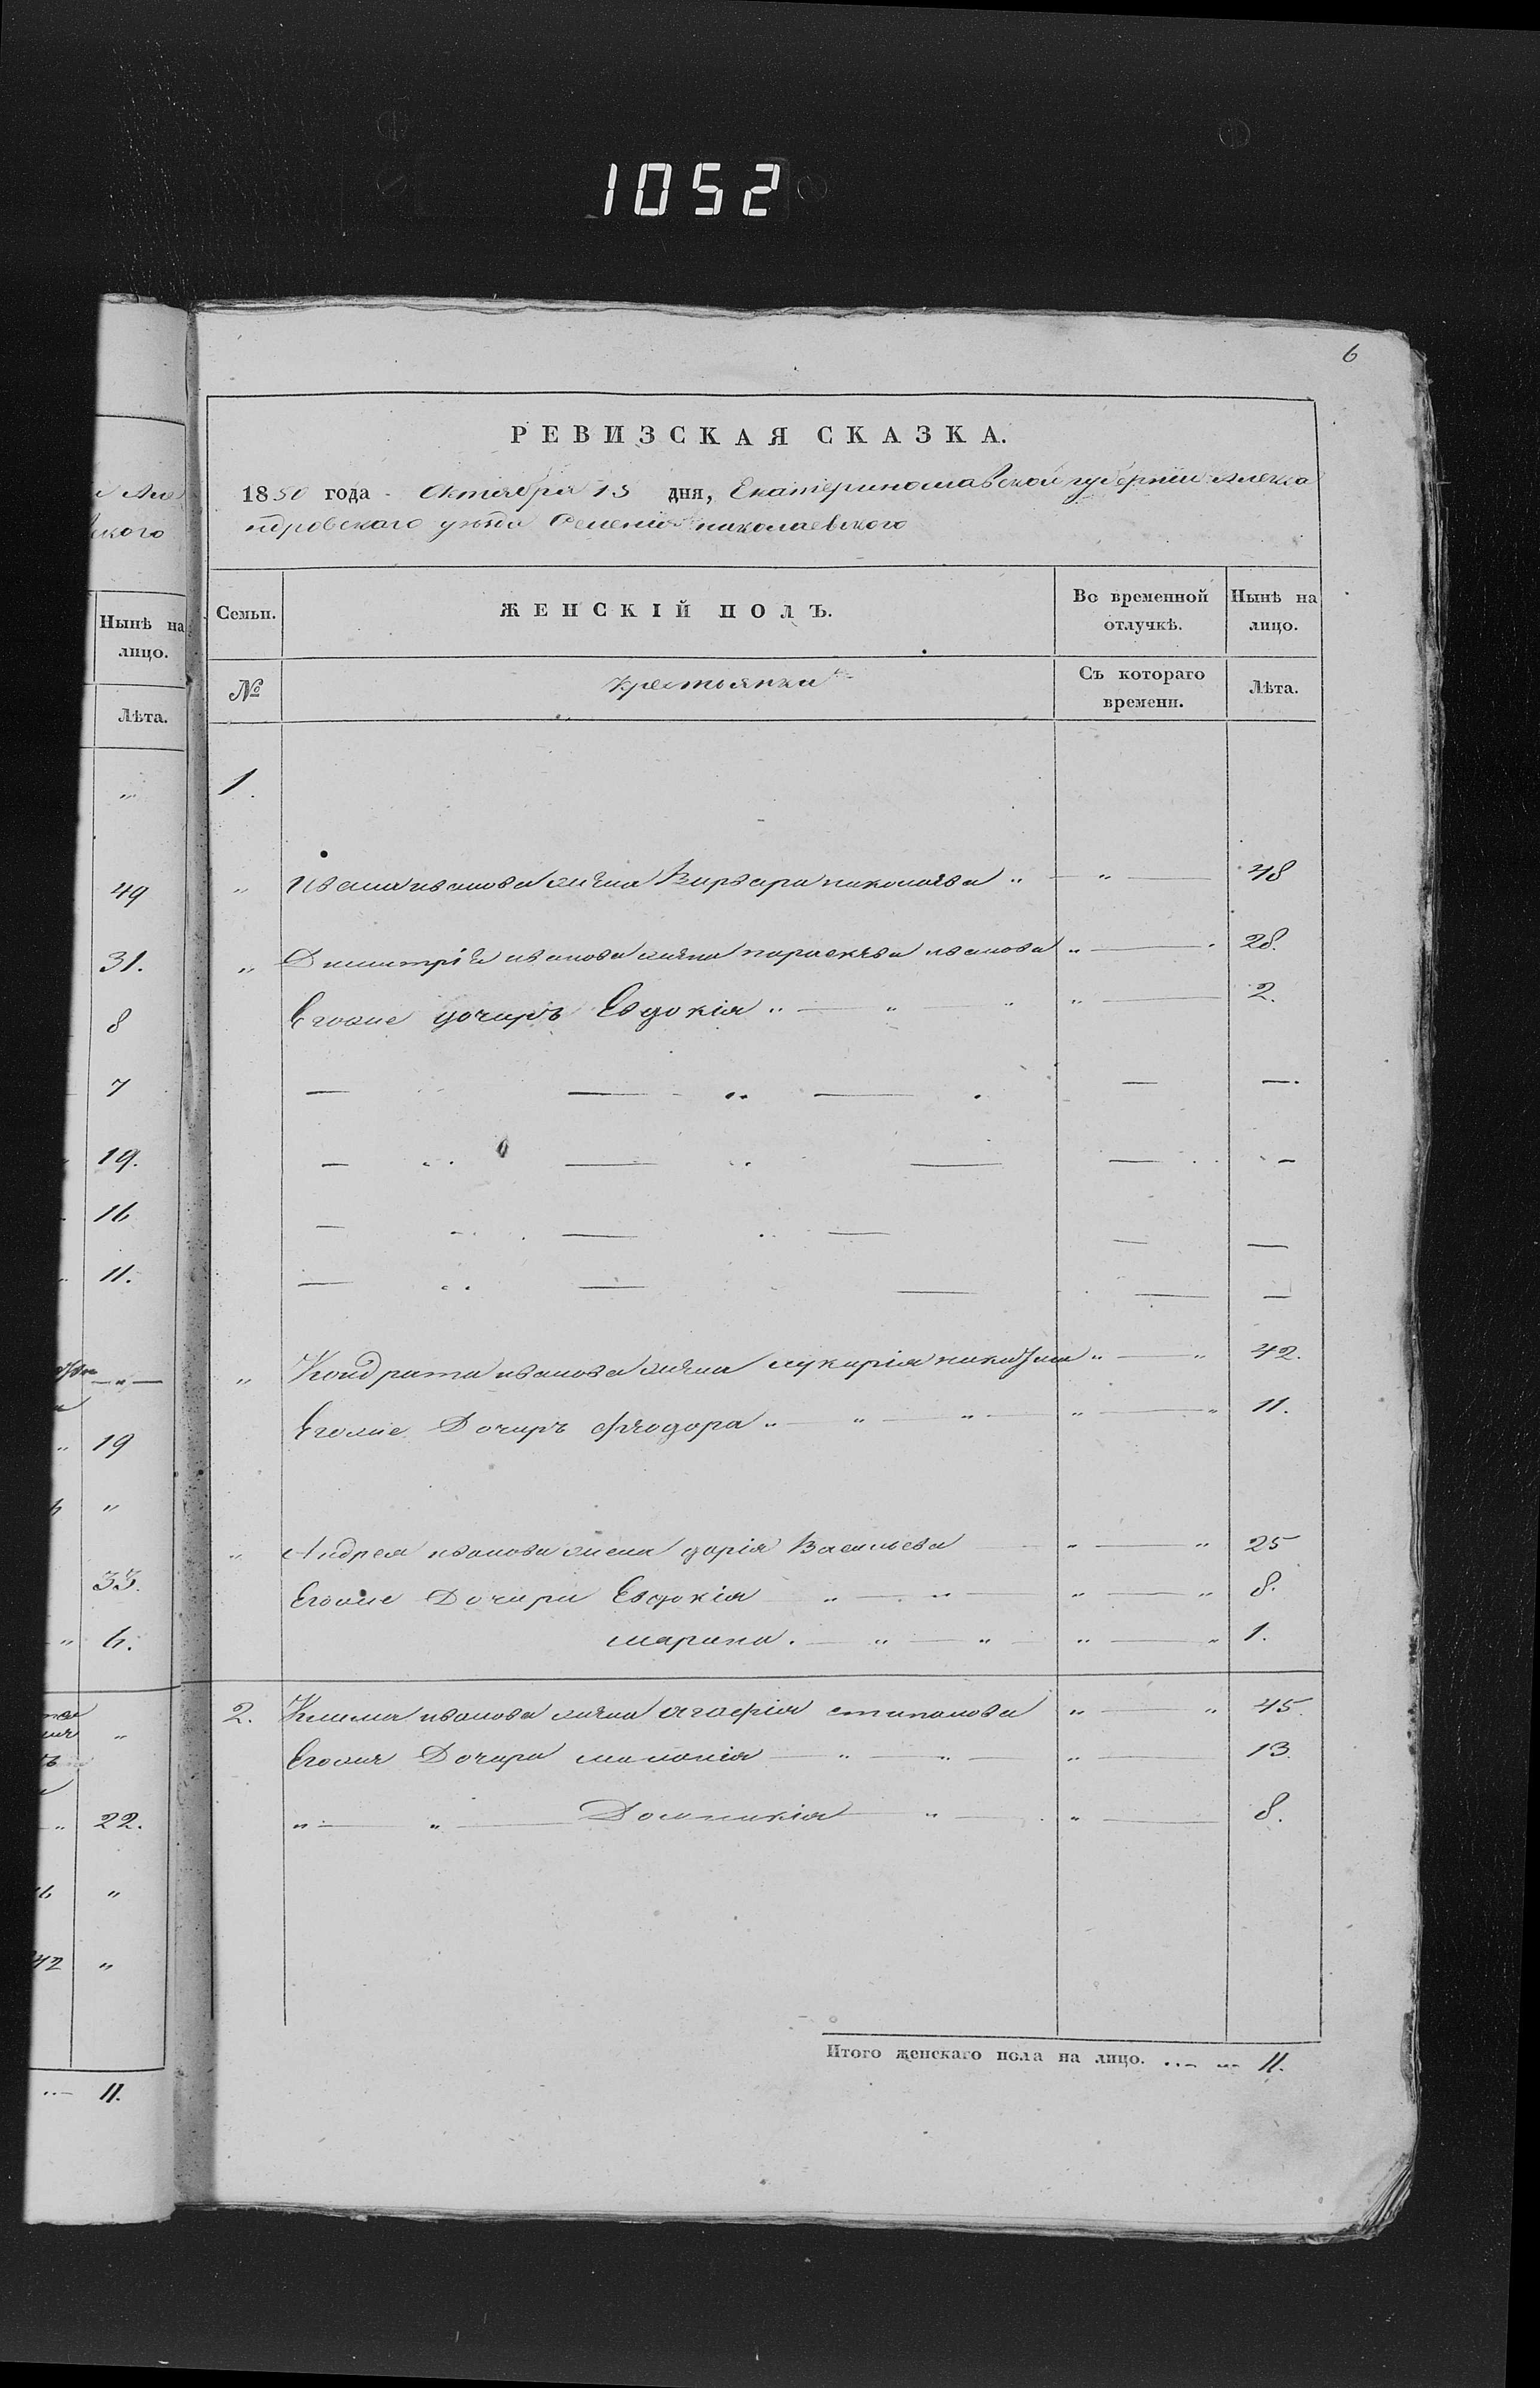 1052
6
РЕВИЗСКАЯ СКАЗКА.
1850 года Октября 15 дня, Екатеринославской губерніи Алекса
ндровскаго уезда Селенія николаевского
Семьи. ЖЕНСКІЙ ПОЛЪ. Во временной отлучкѣ. Нынѣ на лицо.
№ Крестьянки Съ котораго времени. Лѣта.
1.
Ивана иванова жена Варвара николаева 48
Димитрія иванова жена параскева иванова 28.
Егоже дочиръ Евдокія 2.
Кондрата иванова жена лукирія 42.
Егоже Дочиръ феодора 11.
Андрея иванова жена дарія Васильева 25
Егоже Дочири Евдокія 8.
марина. 1.
2. Клима иванова жена агафія стипанова 45.
Егоже Дочири миланія 13.
Домникія 8.
Итого женскаго пола на лицо. 11.
ского
Нынѣ на
лицо.
Лѣта.
49
31.
8
7
19.
16
11.
19
33.
6.
22.
42
11.